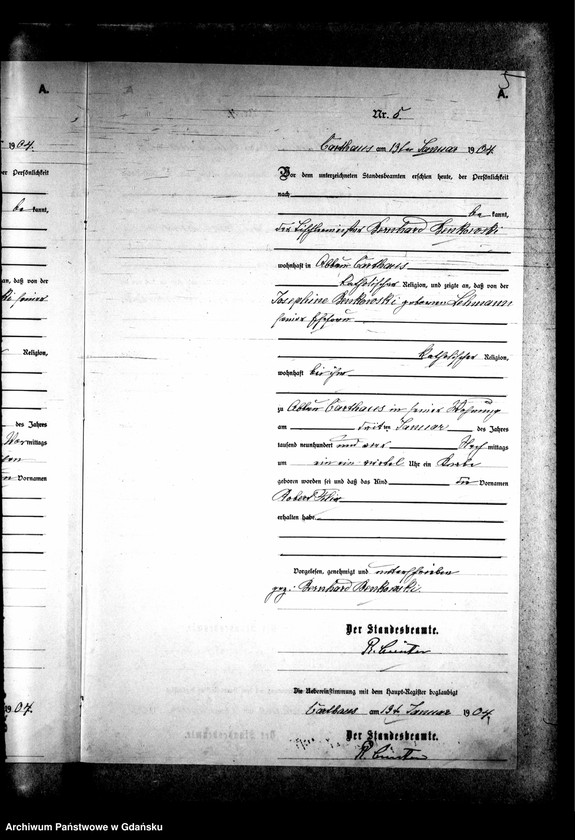 A.
1904.
er Persönlichkeit
be kannt,
an, daß von der
Religion,
des Jahres
mittags
Vornamen
1904.
A.
Nr. 5
Carthaus am 13ten Januar 1904.
Vor dem unterzeichneten Standesbeamten erschien heute, der Persönlichkeit
nach
be kannt,
der Tischlermeister Bernhard Benkowski
wohnhaft in Abbau Carthaus
katholischer Religion, und zeigte an, daß von der
Josephine Benkowski geborenen Lehmann
seiner Ehefrau
katholischer Religion,
wohnhaft bei ihm
zu Abbau Carthaus in seiner Wohnung
am dritten Januar des Jahres
tausend neunhundert und vier Nach mittags
um ein ein viertel Uhr ein Knabe
geboren worden sei und daß das Kind die Vornamen
Robert Felix
erhalten habe.
Vorgelesen, genehmigt und unterschrieben
gez: Bernhard Benkowski.
Der Standesbeamte.
R.
Die Uebereinstimmung mit dem Haupt-Register beglaubigt
Carthaus am 13t Januar 1904.
Der Standesbeamte.
R.
Archiwum Państwowe w Gdańsku